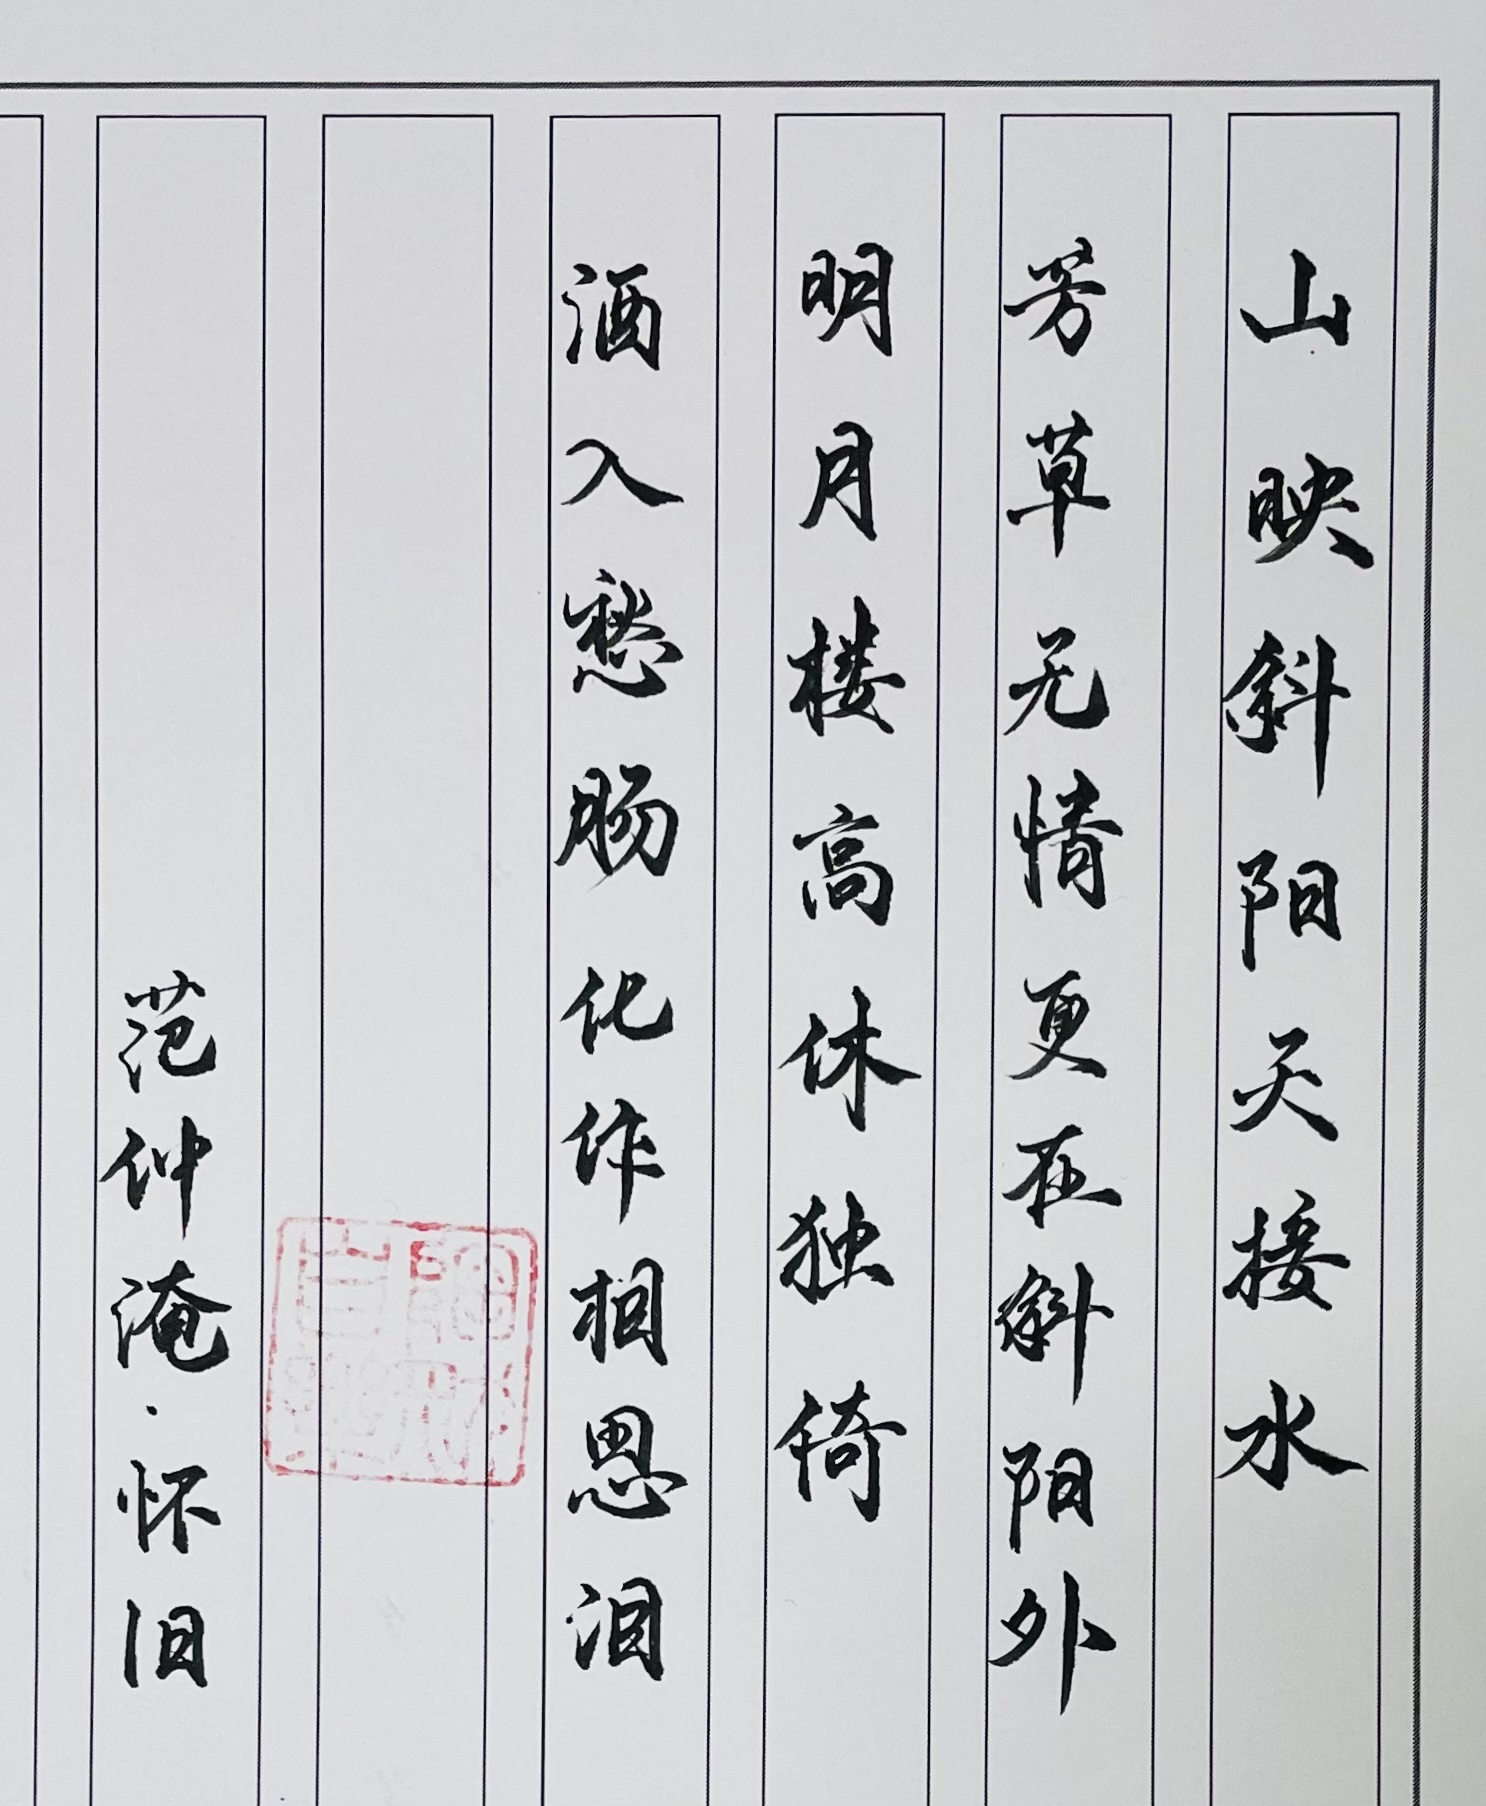 山映斜阳天接水
芳草无情更在斜阳外
明月楼高休独倚
酒入愁肠化作相思泪
范仲淹·怀旧